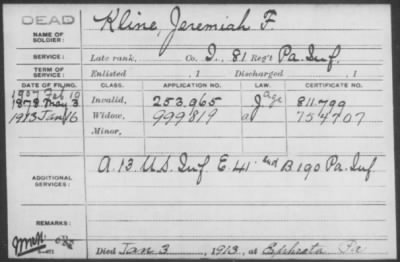 DEAD
NAME OF SOLDIER: Kline, Jeremiah F.
SERVICE: Late rank, Co. I, 81 Reg't Pa. Inf.
TERM OF SERVICE: Enlisted , 1 Discharged , 1
DATE OF FILING. CLASS. APPLICATION NO. LAW. CERTIFICATE NO.
1907 Feb 10
1879 May 3 Invalid, 253,965 J age 811,799
1913 Jan 16 Widow, 999819 a 754707
Minor,
ADDITIONAL SERVICES: A. 13. U.S. Inf. E 41 and B 190 Pa. Inf
REMARKS:
Died Jan 3, 1913, at Ephrata Pa